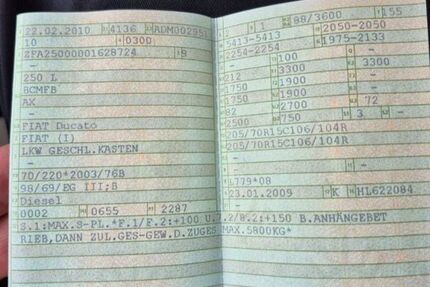 22.02.2010 4136 ADM00295
10 0300
ZFA25000001628724 8
-
250 L
BCMFB
AX
-
FIAT Ducato
FIAT (I)
LKW GESCHL.KASTEN
-
70/220*2003/76B
98/69/EG III;B
Diesel
0002 0655 2287
S.1:MAX.S-PL.*F.1/F.2:+100 U.7.2/8.2:+150 B.ANHÄNGEBET
RIEB,DANN ZUL.GES-GEW.D.ZUGES MAX.5800KG*
2 1 88/3600 155
5413-5413 2050-2050
2254-2254 1975-2133
- 100 -
212 3300 3300
1750 1900 -
1750 1900 -
82 2700 72
2500 750 3 -
205/70R15C106/104R
205/70R15C106/104R
-
-
L779*08
23.01.2009 K HL622084